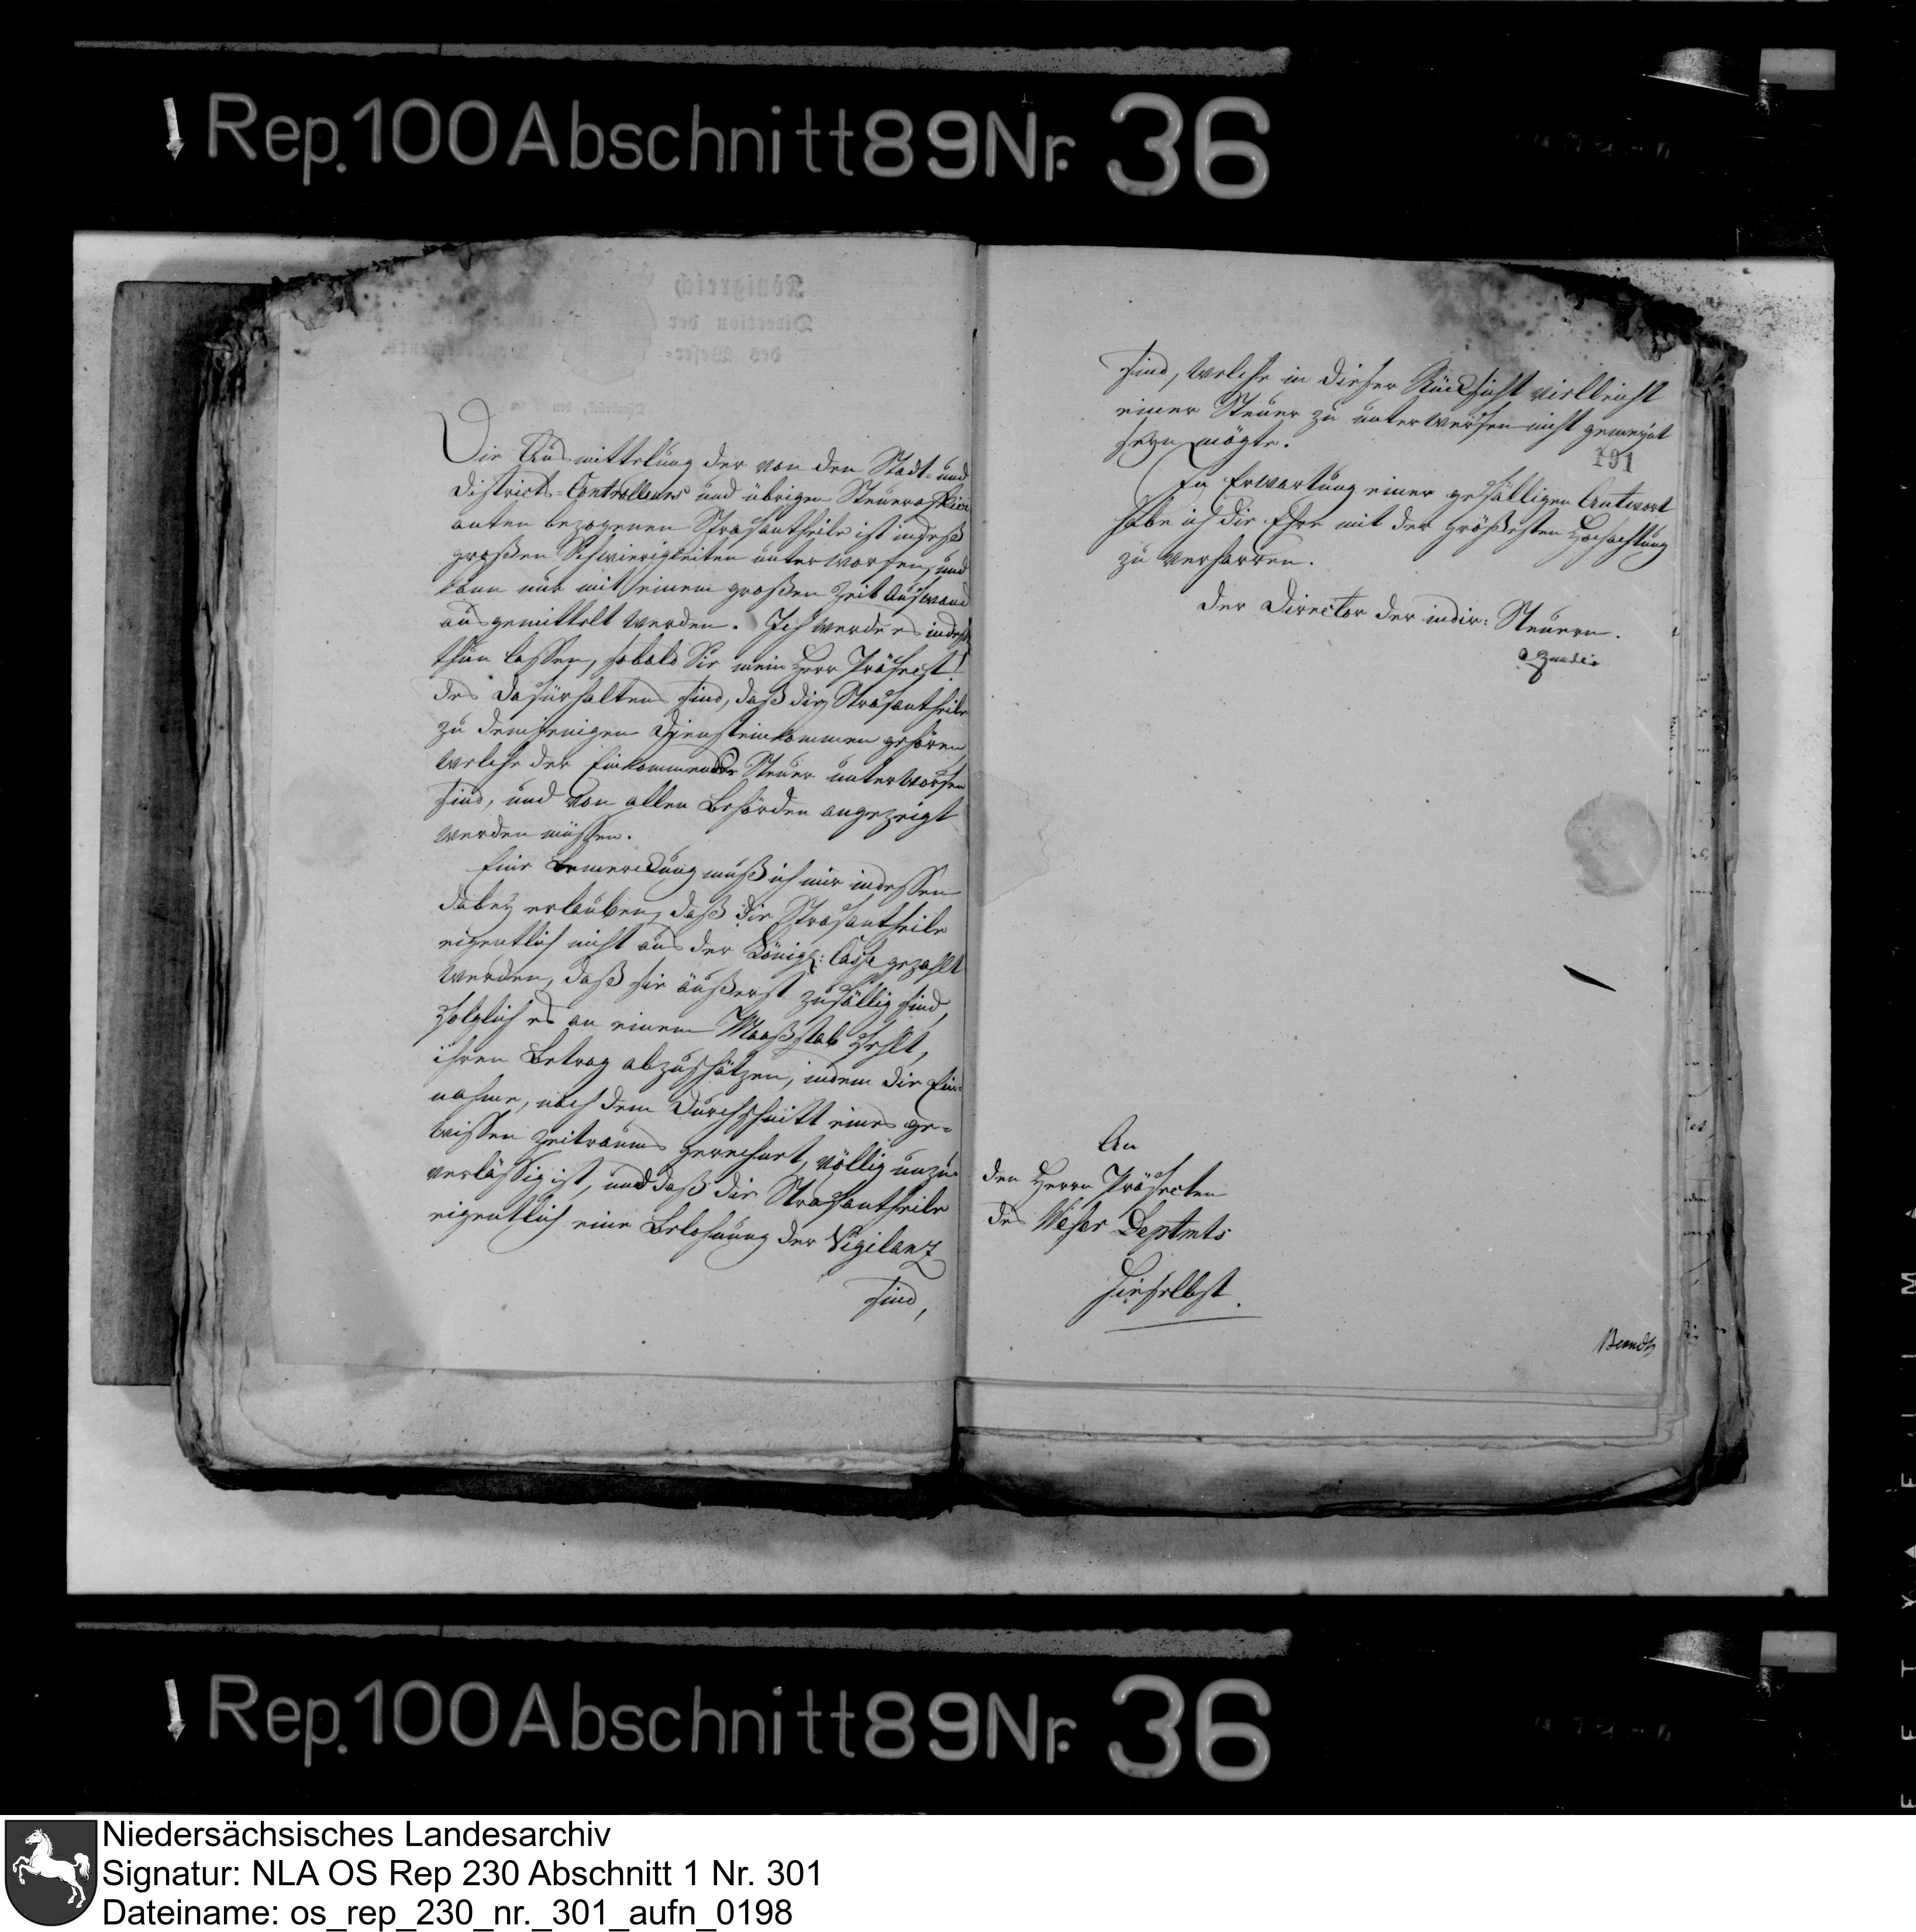 Rep. 100 Abschnitt 89 Nr. 36
Königreich
Direction der
des Weser-
Die Ausmittelung der von den Stadt- und
Districts-Controlleurs und übrigen Steuerofficianten
anten bezogenen Strafantheile ist indeß
großen Schwierigkeiten unterworfen, und
kann nur mit einem großen Zeit Aufwand
ausgemittelt werden. Ich werde es indeß
thun lassen, sobald Sie mein Herr Präfect!
des Dafürhaltens sind, daß die Strafantheile
zu demjenigen Diensteinkommen gehören,
welche der Einkommen Steuer unterworfen
sind, und von allen Behörden angezeigt
werden müssen.
Eine Bemerckung muß ich mir indessen
dabey erlauben, daß die Strafantheile
eigentlich nicht aus der Königl: Casse gezahlt
werden, daß sie äußerst zufällig sind,
folglich es an einem Maaßstab fehlt,
ihren Betrag abzuschätzen, indem die Ein-
nahme, nach dem Durchschnitt eines ge-
wissen Zeitraums gerechnet, völlig unzu-
verlässig ist, und daß die Strafantheile
eigentlich eine Belohnung der Vigilanz
sind,
sind, welche in dieser Rücksicht vielleicht
einer Steuer zu unterwerfen nicht geneigt
seyn mögte.
191
In Erwartung einer gefälligen Antwort
habe ich die Ehre mit der größesten Hochachtung
zu verharren.
Der Director der indir: Steuern.
An
den Herrn Präfecten
des Weser Deptmts
hieselbst.
Rep. 100 Abschnitt 89 Nr. 36
Niedersächsisches Landesarchiv
Signatur: NLA OS Rep 230 Abschnitt 1 Nr. 301
Dateiname: os_rep_230_nr._301_aufn_0198